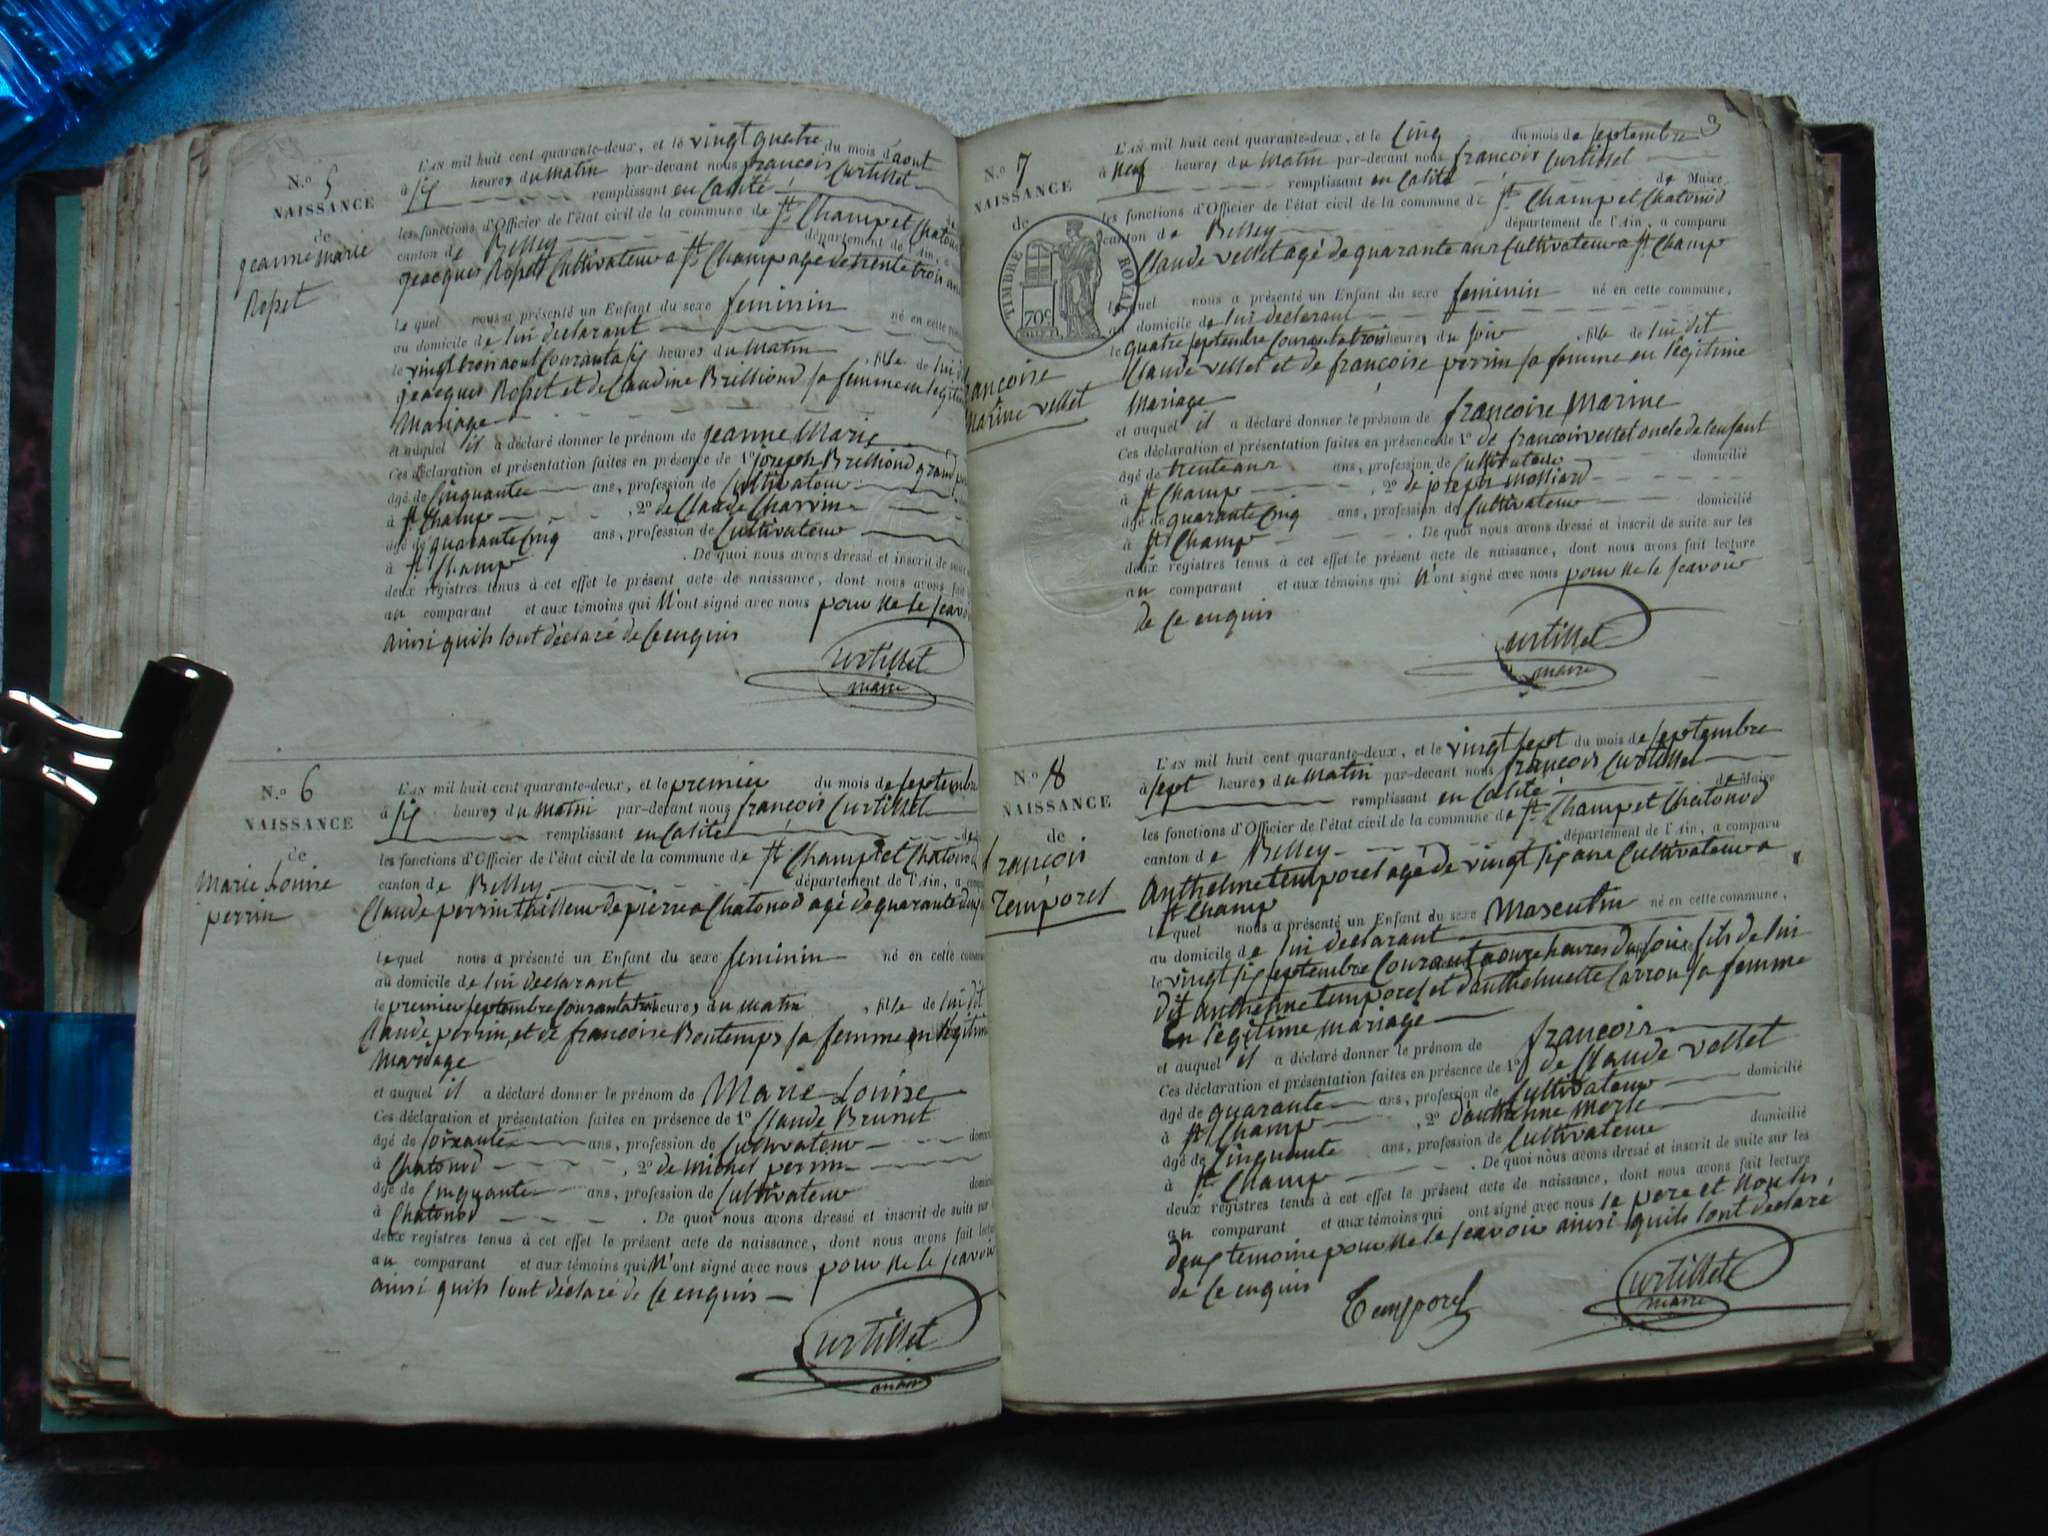 N.º 5
NAISSANCE
de
jeanne marie
Ropet
L'AN mil huit cent quarante-deux, et le vingt quatre du mois d'aout
à six heures du matin par-devant nous françois Curtillet
remplissant en Calité de
les fonctions d'Officier de l'état civil de la commune de St Champ et Chatonod
canton de Belley département de l'Ain, a
jeacques Ropet Cultivateur a St Champ agé de trente trois ans
lequel nous a présenté un Enfant du sexe feminin né en cette
au domicile de lui declarant
le vingt trois aout Courant a six heures du matin , fille de lui dit
jeacques Ropet et de Claudine Brilliond sa femme en legitime
Mariage
et auquel il a déclaré donner le prénom de jeanne Marie
Ces déclaration et présentation faites en présence de 1º joseph Brilliond grand
âgé de Cinquante ans, profession de Cultivateur
à St Champ , 2º de Claude Charvin
âgé de quarante Cinq ans, profession de Cultivateur
à St Champ . De quoi nous avons dressé et inscrit de suite
deux registres tenus à cet effet le présent acte de naissance, dont nous avons fait
au comparant et aux témoins qui N'ont signé avec nous pour ne le scavoir
ainsi quils lont déclaré de Ce enquis
Curtillet
maire
N.º 6
NAISSANCE
de
Marie Louise
perrin
L'AN mil huit cent quarante-deux, et le premier du mois de septembre
à six heures du matin par-devant nous françois Curtillet
remplissant en Calité de
les fonctions d'Officier de l'état civil de la commune de St Champ et Chatonod
canton de Belley département de l'Ain, a
Claude perrin tailleur de pierre a Chatonod agé de quarante deux
lequel nous a présenté un Enfant du sexe feminin né en cette
au domicile de lui declarant
le premier septembre Courant a trois heures du matin , fille de lui dit
Claude perrin et de françoise Bontemps sa femme en légitime
mariage
et auquel il a déclaré donner le prénom de Marie Louise
Ces déclaration et présentation faites en présence de 1º Claude Brunet
âgé de soixante ans, profession de Cultivateur
à Chatonod , 2º de michel perrin
âgé de Cinquante ans, profession de Cultivateur
à Chatonod . De quoi nous avons dressé et inscrit de suite sur
deux registres tenus à cet effet le présent acte de naissance, dont nous avons fait
au comparant et aux témoins qui N'ont signé avec nous pour ne le scavoir
ainsi quils lont déclaré de Ce enquis
Curtillet
maire
3
N.º 7
NAISSANCE
de
TIMBRE ROYAL
70c
françoise
Marine vellet
L'AN mil huit cent quarante-deux, et le Cinq du mois de septembre
à neuf heures du matin par-devant nous françois Curtillet
remplissant en Calité de Maire
les fonctions d'Officier de l'état civil de la commune de St Champ et Chatonod
canton de Belley département de l'Ain, a comparu
Claude vellet agé de quarante ans Cultivateur a St Champ
lequel nous a présenté un Enfant du sexe feminin né en cette commune,
au domicile de lui declarant
le quatre septembre Courant a trois heures du soir , fille de lui dit
Claude vellet et de françoise perrin sa femme en légitime
Mariage
et auquel il a déclaré donner le prénom de françoise Marine
Ces déclaration et présentation faites en présence de 1º de françois vellet oncle de lenfant
âgé de trente ans ans, profession de Cultivateur domicilié
à St Champ , 2º de joseph Molliard
âgé de quarante Cinq ans, profession de Cultivateur domicilié
à St Champ . De quoi nous avons dressé et inscrit de suite sur les
deux registres tenus à cet effet le présent acte de naissance, dont nous avons fait lecture
au comparant et aux témoins qui N'ont signé avec nous pour ne le scavoir
de Ce enquis
Curtillet
maire
N.º 8
NAISSANCE
de
françois
Temporel
L'AN mil huit cent quarante-deux, et le vingt sept du mois de septembre
à sept heures du matin par-devant nous françois Curtillet
remplissant en Calité de Maire
les fonctions d'Officier de l'état civil de la commune de St Champ et Chatonod
canton de Belley département de l'Ain, a comparu
Anthelme temporel agé de vingt six ans Cultivateur a
St Champ
lequel nous a présenté un Enfant du sexe Masculin né en cette commune,
au domicile de lui declarant
le vingt six septembre Courant a onze heures du soir fils de lui
dit anthelme temporel et d'anthelmette Carron sa femme
en legitime mariage
et auquel il a déclaré donner le prénom de françois
Ces déclaration et présentation faites en présence de 1º de Claude vellet
âgé de quarante ans, profession de Cultivateur domicilié
à St Champ , 2º danthelme Merle
âgé de Cinquante ans, profession de Cultivateur domicilié
à St Champ . De quoi nous avons dressé et inscrit de suite sur les
deux registres tenus à cet effet le présent acte de naissance, dont nous avons fait lecture
au comparant et aux témoins qui ont signé avec nous le pere et non les
deux temoins pour ne le scavoir ainsi quils lont déclaré
de Ce enquis
Temporel
Curtillet
maire